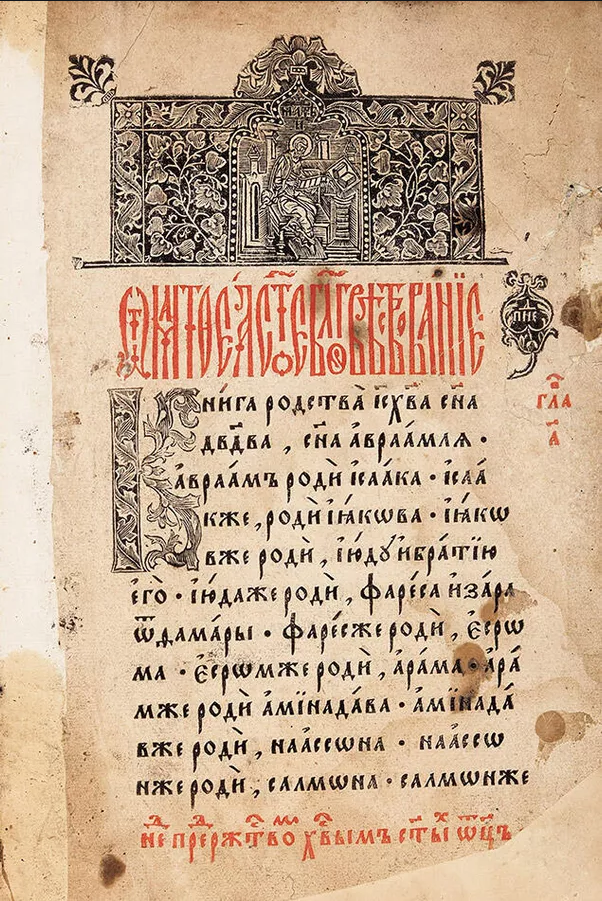 Ѿ МАТѲЕѦ СТ҃ОЕ БЛ҃ГОВѢСТВОВАНІЕ
гла҃
а҃
Кни́га родства̀ і҆сх҃ва сн҃а
дв҃два , сн҃а а҆враа́млѧ ·
а҆враа́мъ родѝ і҆саа́ка · і҆саа́
кже , родѝ і҆а́кѡва · і҆а́кѡ
вже родѝ , і҆ю́дꙋ и҆ бра́тїю
є҆гѡ̀ · і҆ю́да же родѝ , фаре́са и҆ за́ра
ѿ дама́ры · фаре́с же родѝ , є҆срѡ
ма · є҆срѡ́мже родѝ , а҆ра́ма · а҆ра́
мже родѝ а҆мїнада́ва · а҆мїнада́
вже родѝ , наа҆ссѡна · наа҆ссѡ
нже родѝ , салмѡна · салмѡнже
не пре ржтво хв҃ымъ ст҃ы ѡц҃ъ